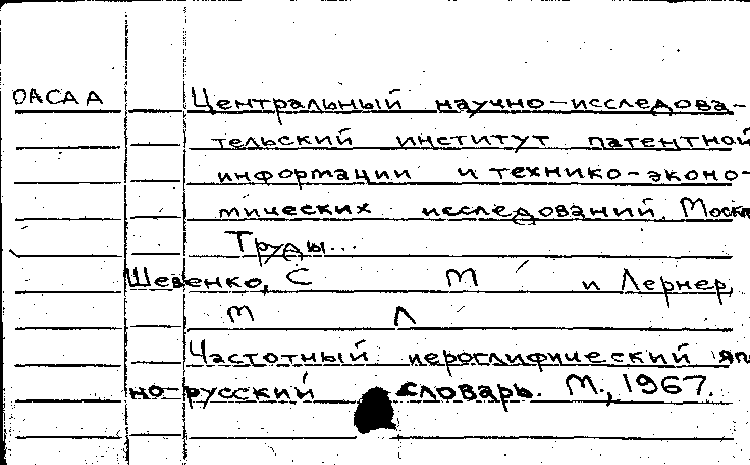 ОАСАА Центральный научно-исследова-
тельский институт патентной
информации и технико-эконо-
мических исследований. Москв
Труды...
Шевенко, С М и Лернер,
М Л
Частотный иероглифический япо
но-русский словарь. М., 1967.